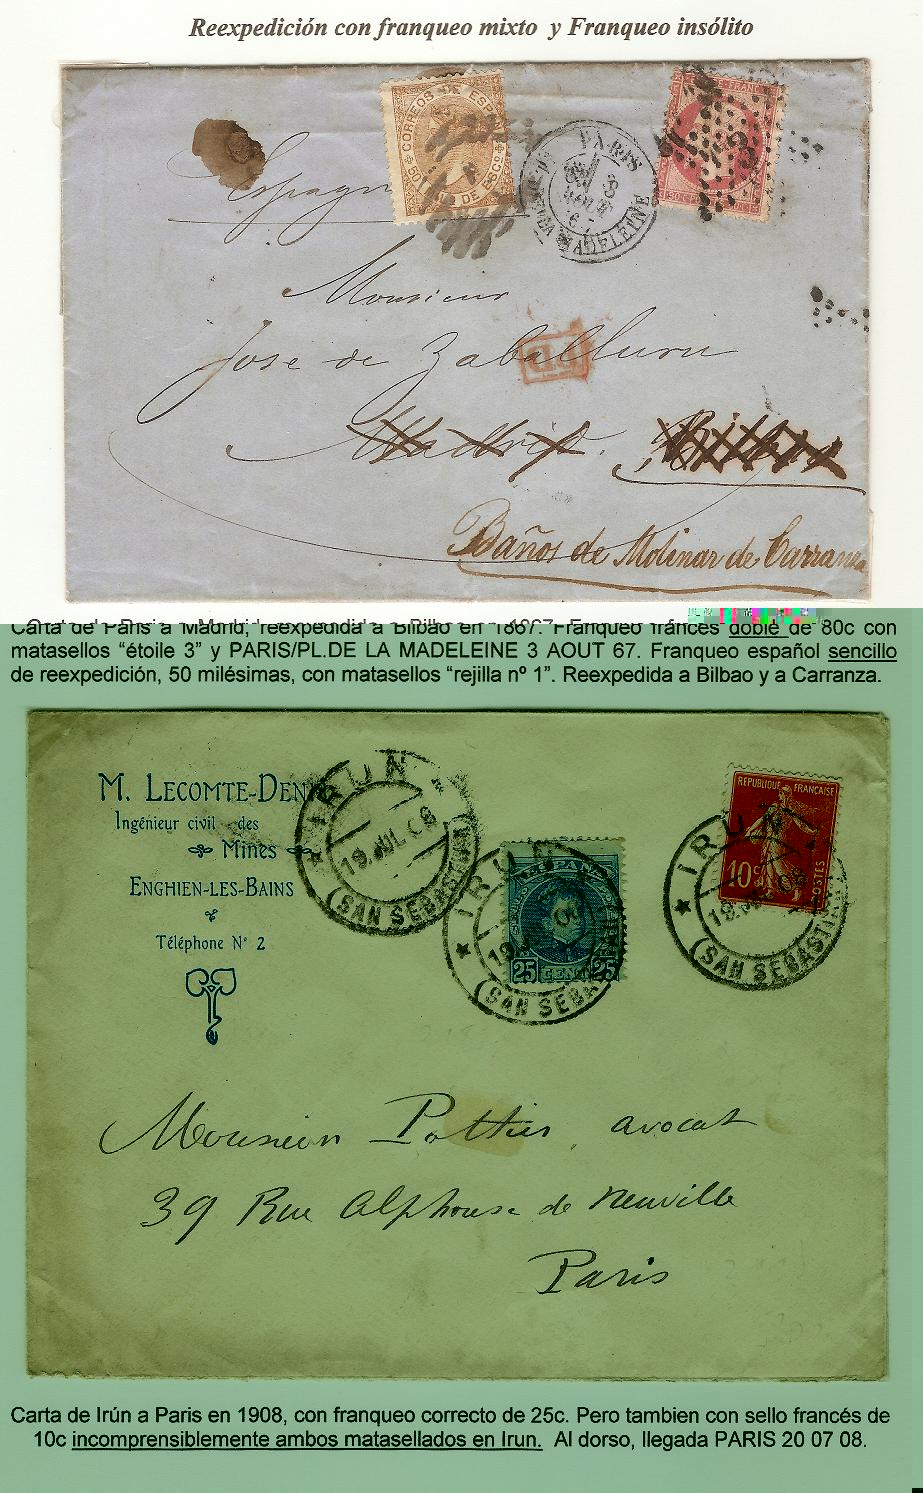 Reexpedición con franqueo mixto y Franqueo insólito
CORREOS DE ESP
50 MILS DE ESCO
PARIS
3
AOUT
67
MADELEINE
Espagne
PD
Monsieur
José de Zaballuru
Madrid.
Bilbao
Baños de Molinar de Carranza
Carta de París a Madrid, reexpedida a Bilbao en 1867. Franqueo francés doble de 80c con
matasellos “étoile 3” y PARIS/PL.DE LA MADELEINE 3 AOUT 67. Franqueo español sencillo
de reexpedición, 50 milésimas, con matasellos “rejilla nº 1”. Reexpedida a Bilbao y a Carranza.
M. LECOMTE-DENIS
Ingénieur civil des
Mines
ENGHIEN-LES-BAINS
Téléphone Nº 2
IRUN
19 JUL 08
(SAN SEBASTIAN)
IRUN
25 CENT 25
(SAN SEBA
REPUBLIQUE FRANÇAISE
10c POSTES
IRUN
(SAN SEBASTIAN)
Monsieur Pottier, avocat
39 Rue Alphonse de Neuville
Paris
Carta de Irún a Paris en 1908, con franqueo correcto de 25c. Pero tambien con sello francés de
10c incomprensiblemente ambos matasellados en Irun. Al dorso, llegada PARIS 20 07 08.